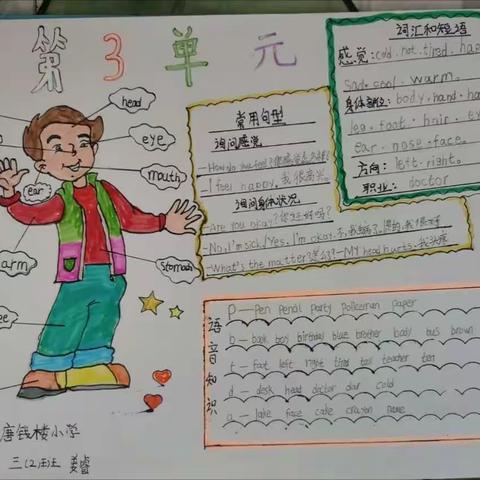 第3单元
head
eye
mouth
ear
arm
stomach
常用句型
询问感觉
—How do you feel?
—I feel happy. 我很高兴。
询问身体状况
—Are you okay? 你还好吗?
—No, I'm sick./Yes, I'm okay.
—What's the matter? 怎么了? —MY head hurts. 我头疼
词汇和短语
感觉: cold. hot. tired. hap
sad. cool. warm.
身体部位: body. hand. ha
leg. foot. hair. ey
ear. nose. face.
方向: left. right.
职业: doctor
语音知识
p — pen pencil party policeman paper
b — book boy birthday blue brother body bus brown
t — foot left right tired taxi teacher ten
d — desk head doctor dar cold
a — lake face cake crayon name
唐钱楼小学
三(2)班 姜睿